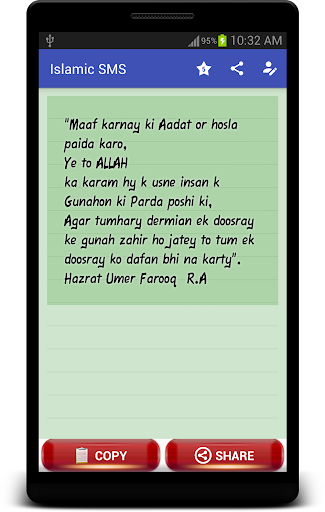 95% 10:32 AM
Islamic SMS
"Maaf karnay ki Aadat or hosla
paida karo,
Ye to ALLAH
ka karam hy k usne insan k
Gunahon ki Parda poshi ki,
Agar tumhary dermian ek doosray
ke gunah zahir ho jatey to tum ek
doosray ko dafan bhi na karty".
Hazrat Umer Farooq R.A
COPY SHARE